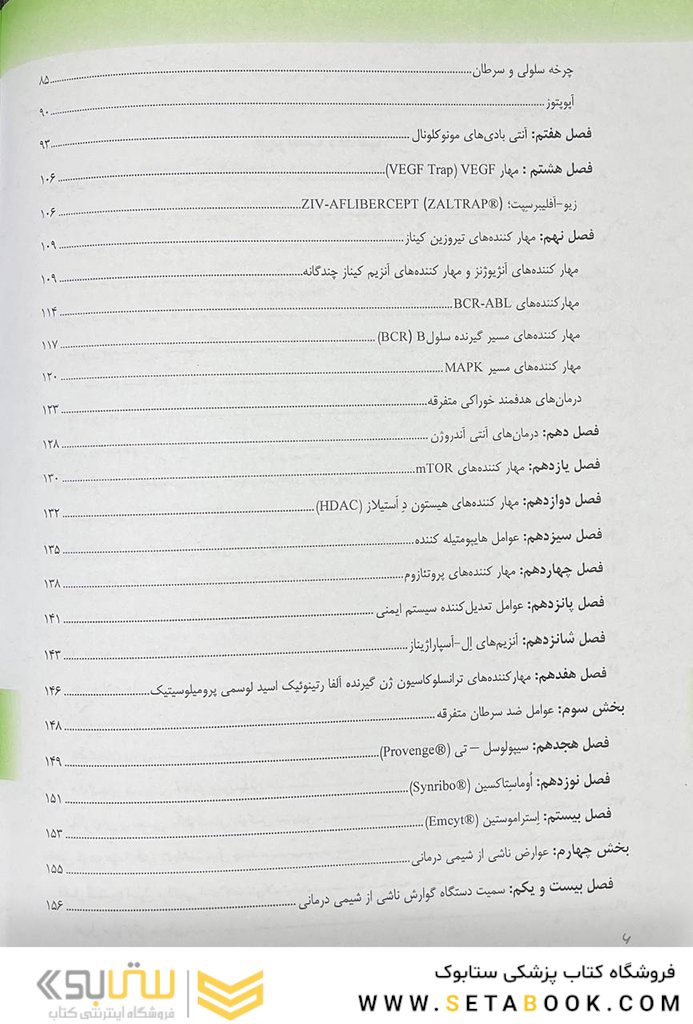 چرخه سلولی و سرطان ........ ۸۵
آپوپتوز ........ ۹۰
فصل هفتم: آنتی بادی‌های مونوکلونال ........ ۹۳
فصل هشتم : مهار VEGF (VEGF Trap) ........ ۱۰۶
زیو-اَفلیبرسپت؛ ZIV-AFLIBERCEPT (ZALTRAP®) ........ ۱۰۶
فصل نهم: مهار کننده‌های تیروزین کیناز ........ ۱۰۹
مهار کننده‌های آنژیوژنز و مهار کننده‌های آنزیم کیناز چندگانه ........ ۱۰۹
مهارکننده‌های BCR-ABL ........ ۱۱۴
مهار کننده‌های مسیر گیرنده سلول B (BCR) ........ ۱۱۷
مهار کننده‌های مسیر MAPK ........ ۱۲۰
درمان‌های هدفمند خوراکی متفرقه ........ ۱۲۳
فصل دهم: درمان‌های آنتی آندروژن ........ ۱۲۸
فصل یازدهم: مهار کننده‌های mTOR ........ ۱۳۰
فصل دوازدهم: مهار کننده‌های هیستون دِ اَستیلاز (HDAC) ........ ۱۳۲
فصل سیزدهم: عوامل هایپومتیله کننده ........ ۱۳۵
فصل چهاردهم: مهار کننده‌های پروتئازوم ........ ۱۳۸
فصل پانزدهم: عوامل تعدیل‌کننده سیستم ایمنی ........ ۱۴۱
فصل شانزدهم: آنزیم‌های اِل-آسپاراژیناز ........ ۱۴۳
فصل هفدهم: مهارکننده‌های ترانسلوکاسیون ژن گیرنده آلفا رتینوئیک اسید لوسمی پرومیلوسیتیک ........ ۱۴۶
بخش سوم: عوامل ضد سرطان متفرقه ........ ۱۴۸
فصل هجدهم: سیپولوسل – تی (Provenge®) ........ ۱۴۹
فصل نوزدهم: اُوماسِتاکسین (Synribo®) ........ ۱۵۱
فصل بیستم: اِستراموستین (Emcyt®) ........ ۱۵۳
بخش چهارم: عوارض ناشی از شیمی درمانی ........ ۱۵۵
فصل بیست و یکم: سمیت دستگاه گوارش ناشی از شیمی درمانی ........ ۱۵۶
فروشگاه کتاب پزشکی ستابوک
WWW.SETABOOK.COM
ستابوک
فروشگاه اینترنتی کتاب